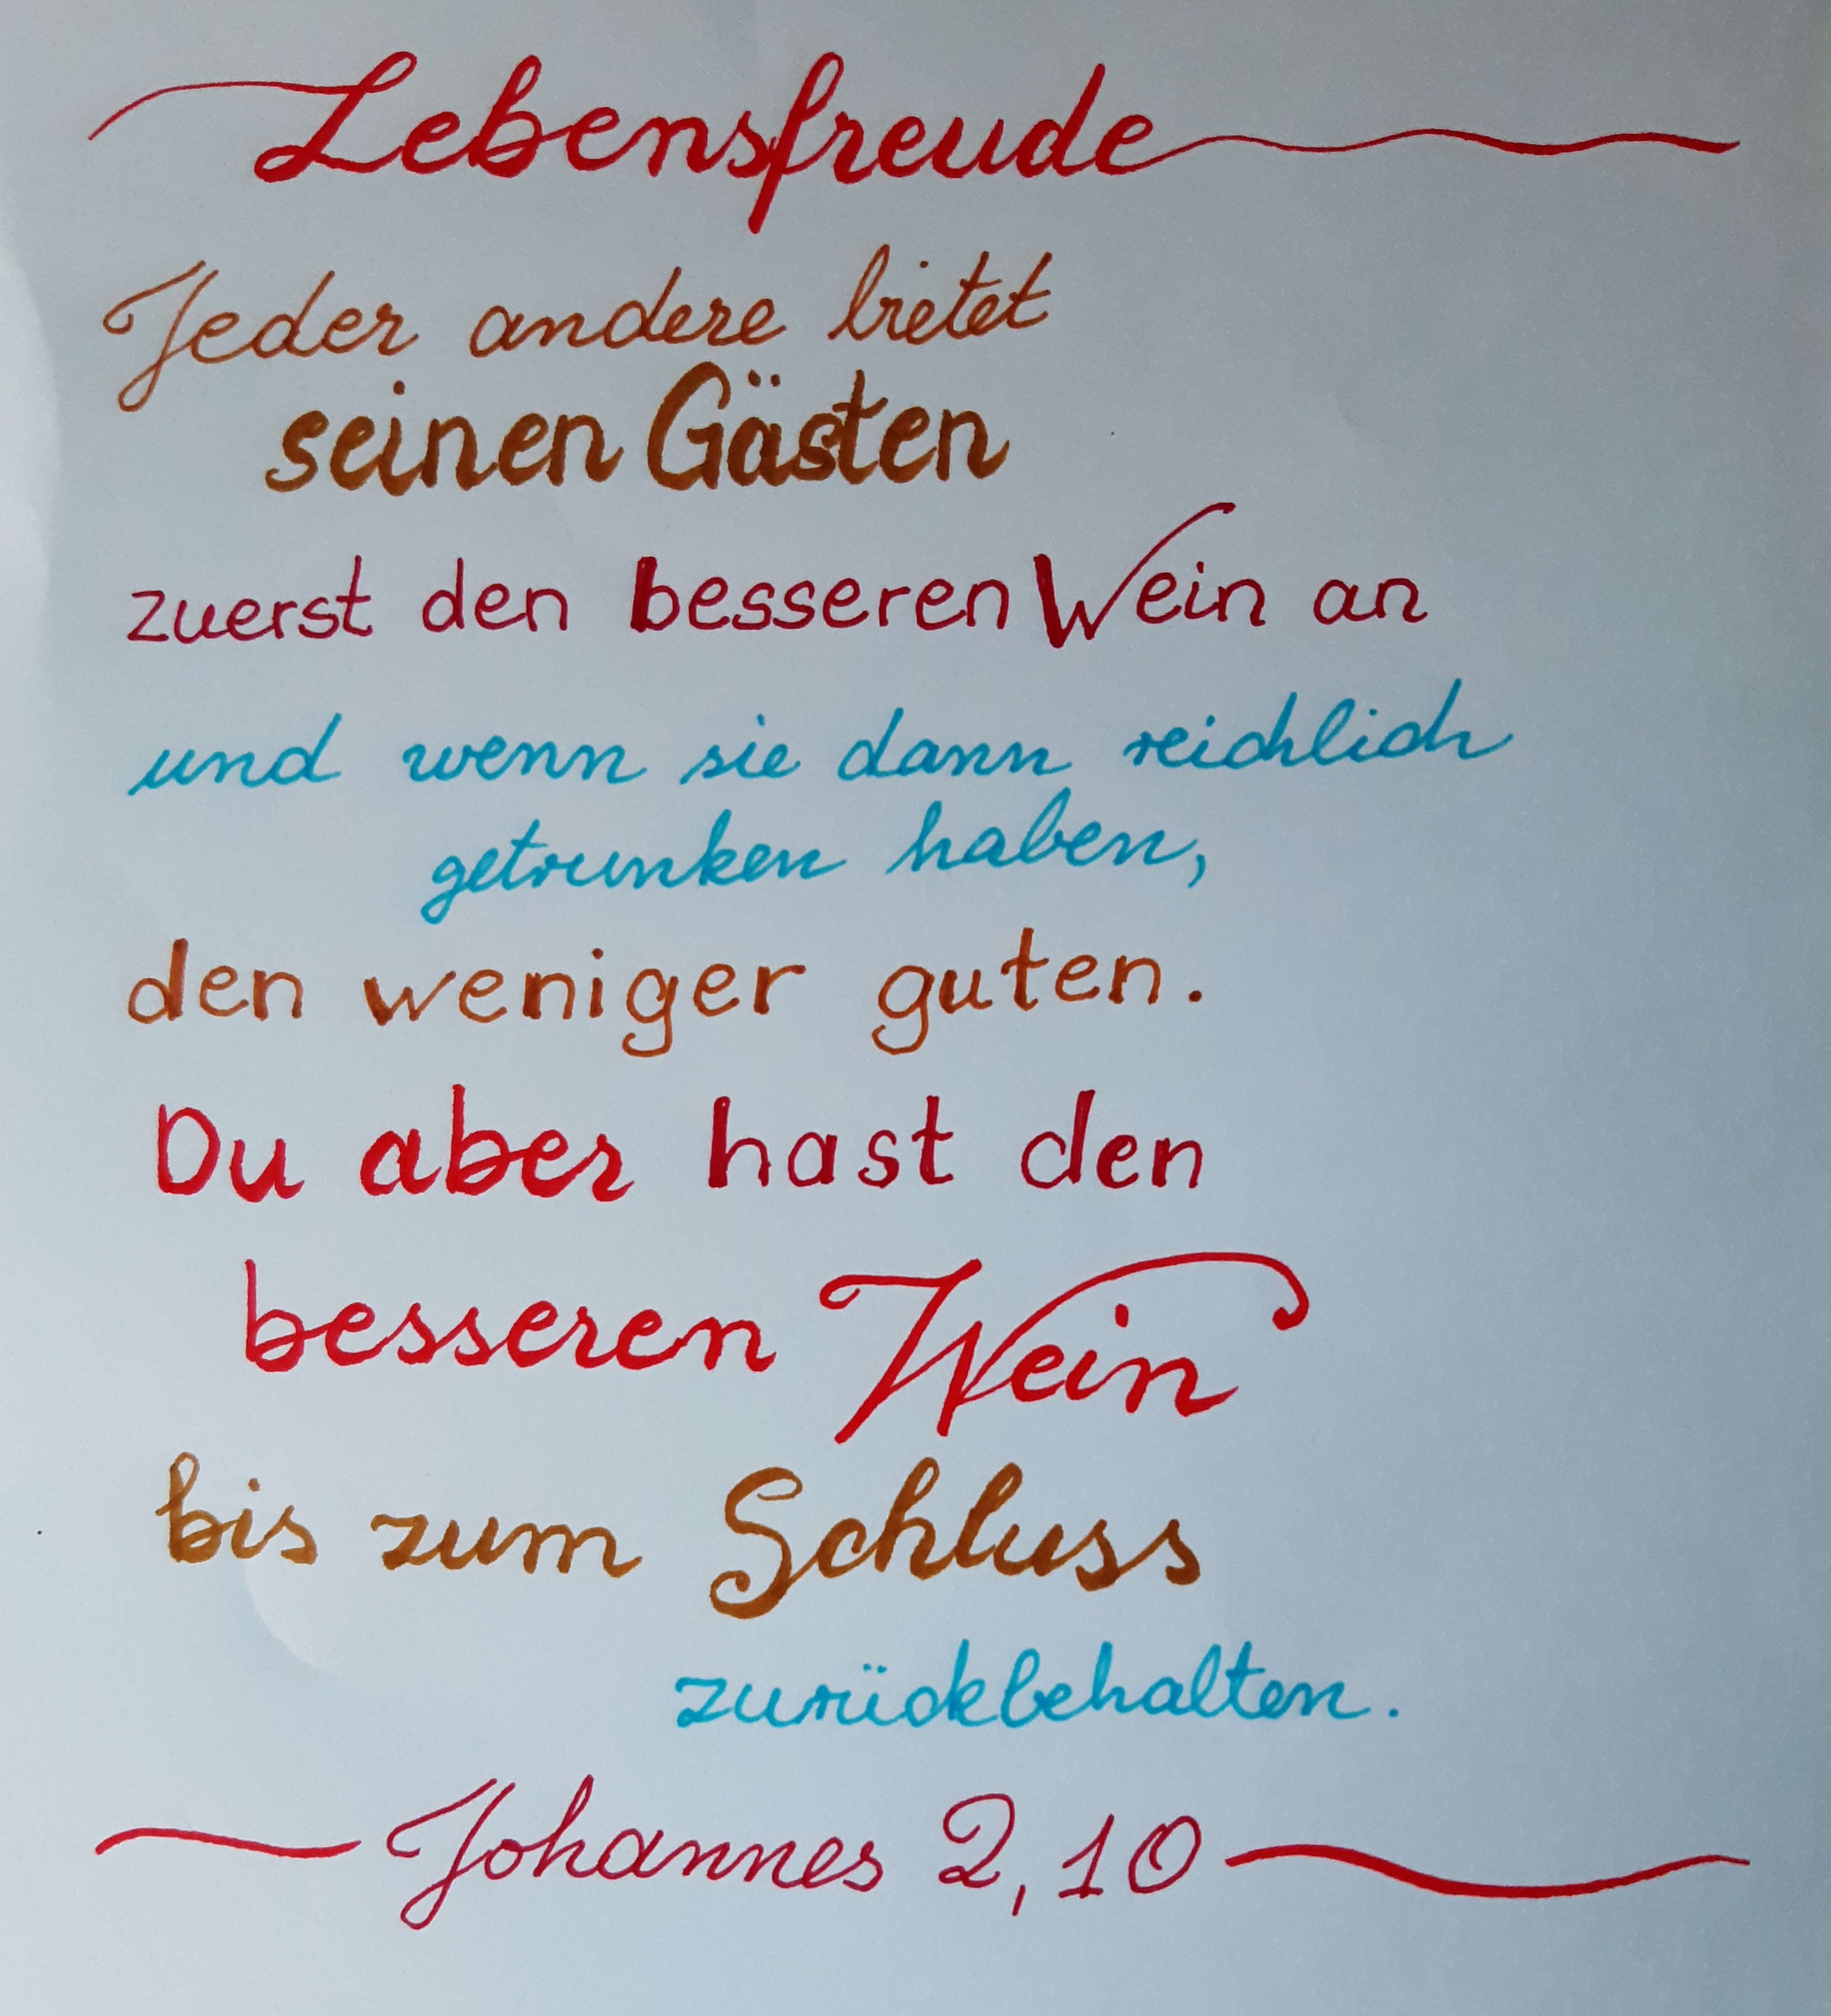 Lebensfreude
Jeder andere bietet
seinen Gästen
zuerst den besseren Wein an
und wenn sie dann reichlich
getrunken haben,
den weniger guten.
Du aber hast den
besseren Wein
bis zum Schluss
zurückbehalten.
Johannes 2,10